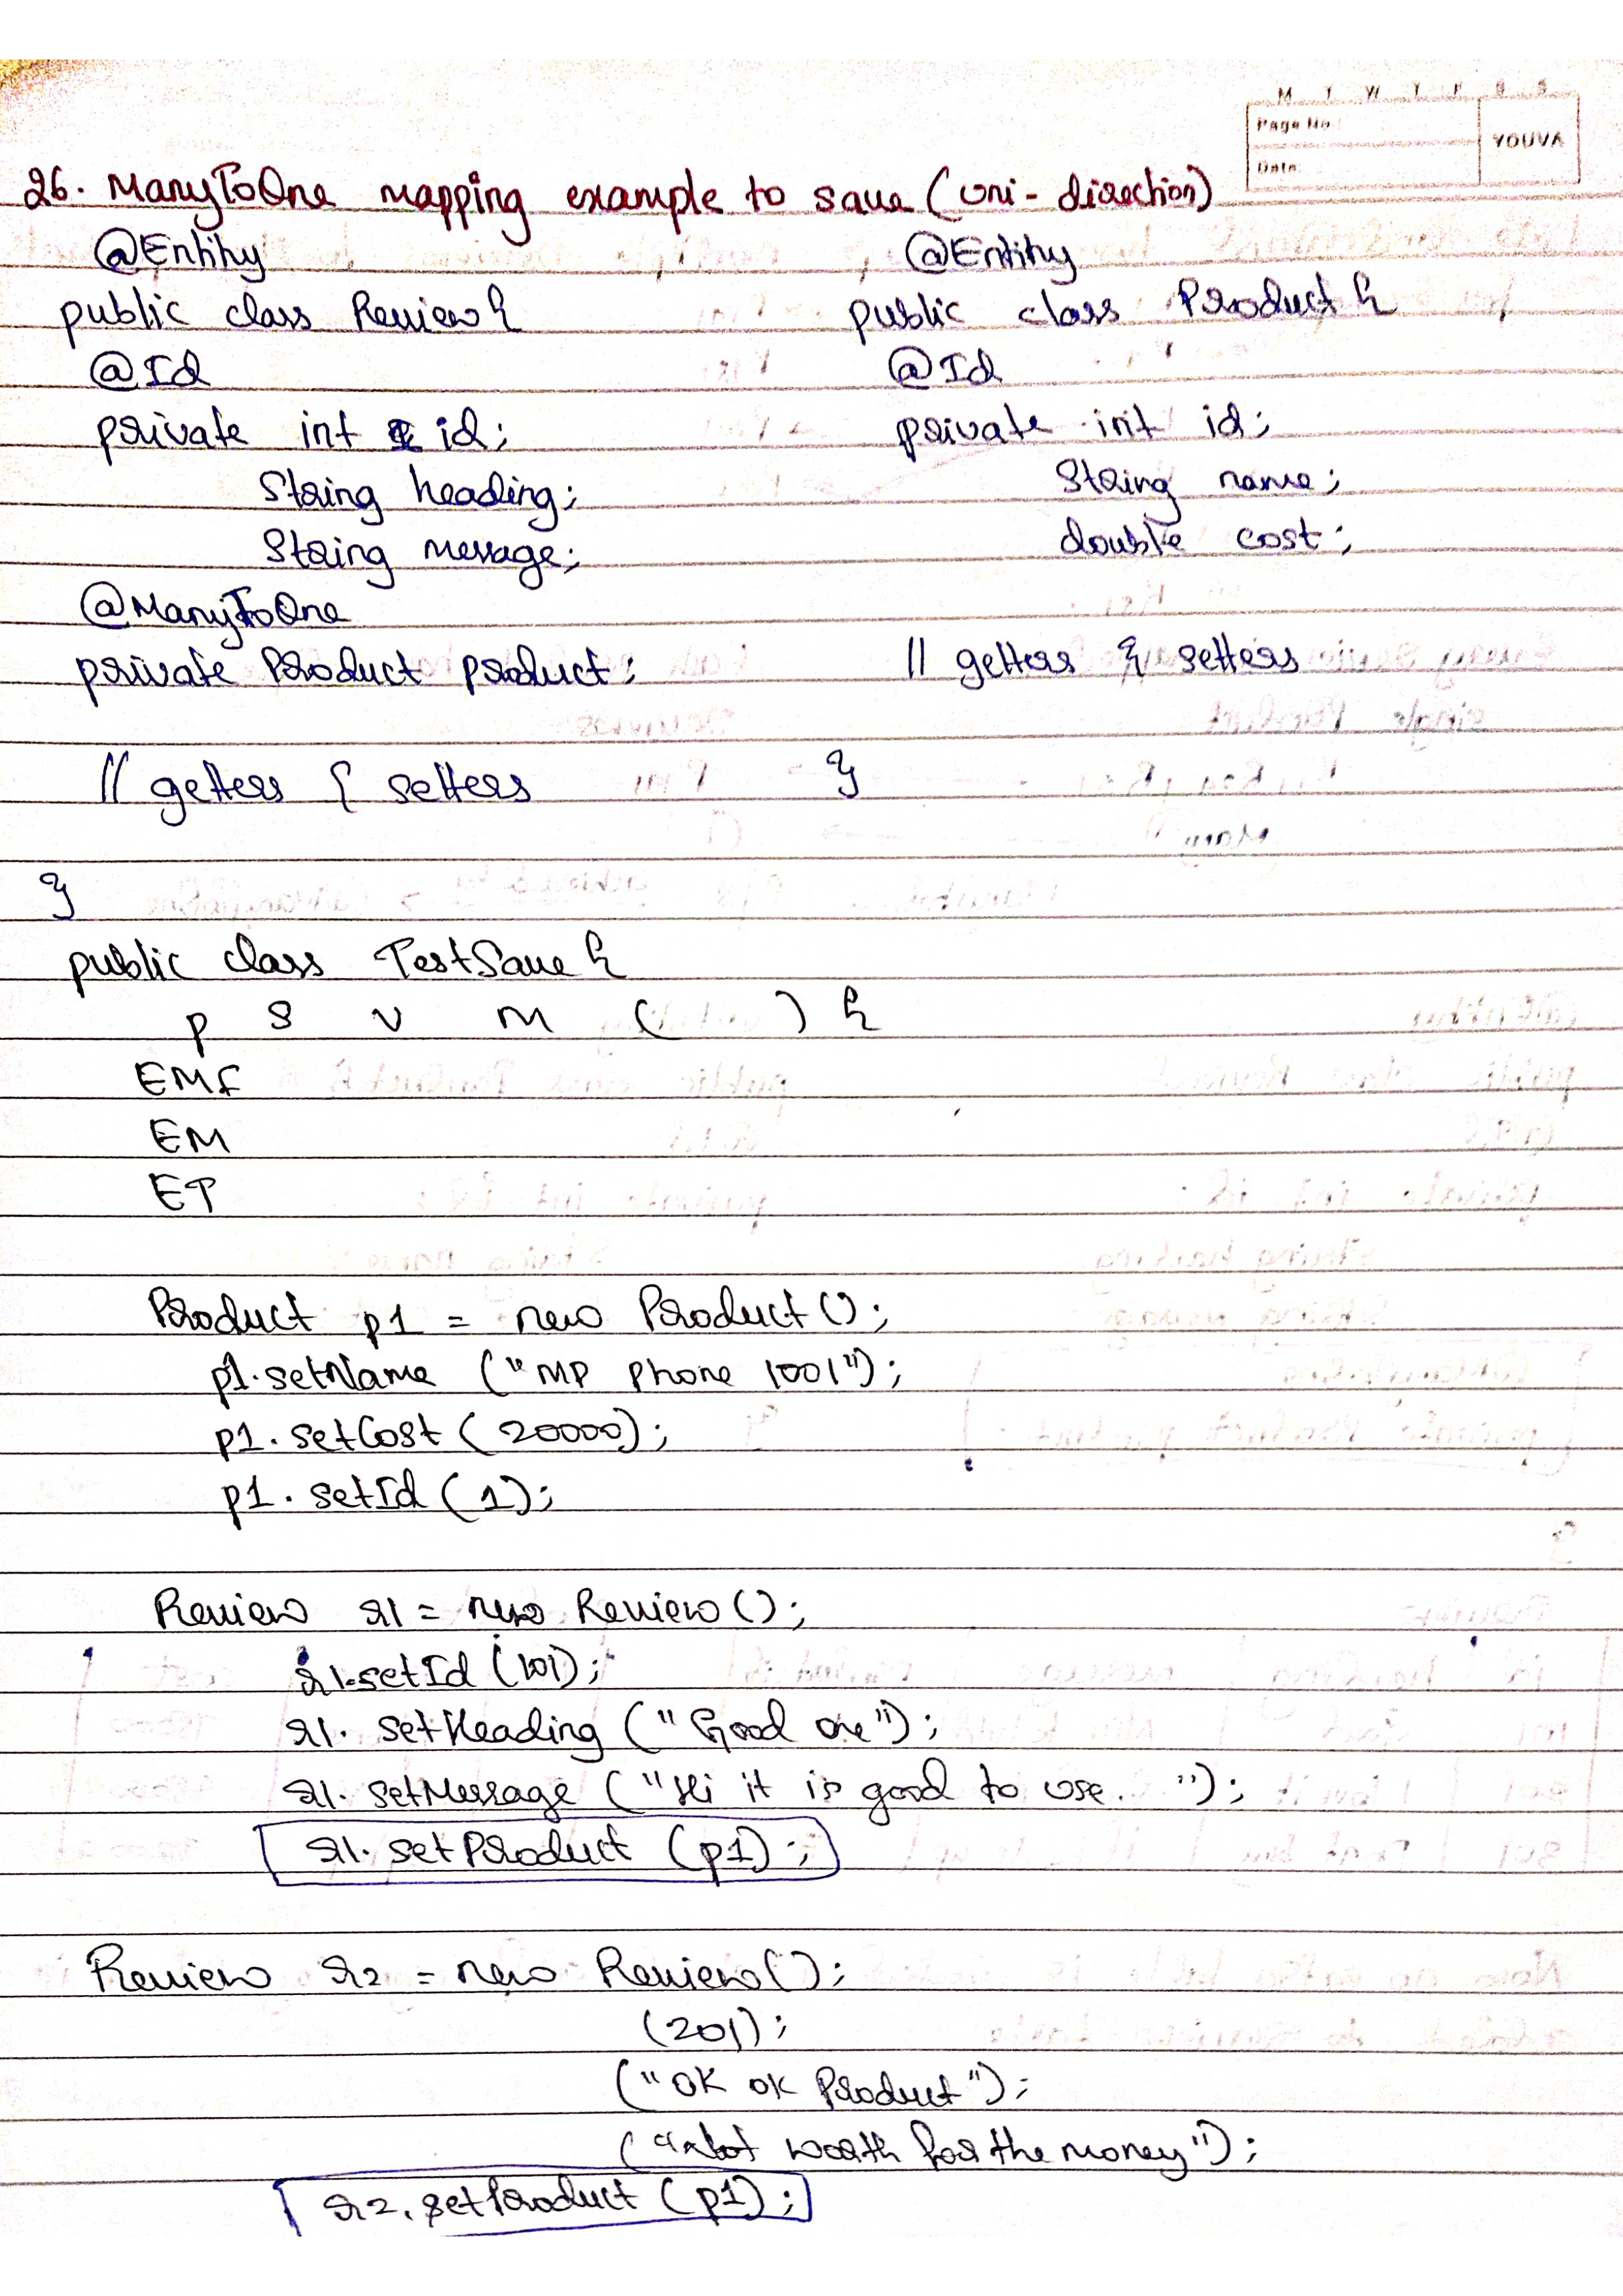 M T W T F S S
Page No.:
Date:
YOUVA
26. ManyToOne mapping example to save (uni-direction)
@Entity
public class Review {
@Id
private int id;
String heading;
String message;
@ManyToOne
private Product product;
// getters & setters
}
@Entity
public class Product {
@Id
private int id;
String name;
double cost;
// getters & setters
}
public class TestSave {
p s v m ( ) {
EMF
EM
ET
Product p1 = new Product();
p1.setName ("MP Phone 1001");
p1.setCost (20000);
p1.setId (1);
Review r1 = new Review();
r1.setId (101);
r1.setHeading ("Good one");
r1.setMessage ("Hi it is good to use. ");
r1.setProduct (p1);
Review r2 = new Review();
(201);
("OK OK Product");
("not worth for the money");
r2.setProduct (p1);